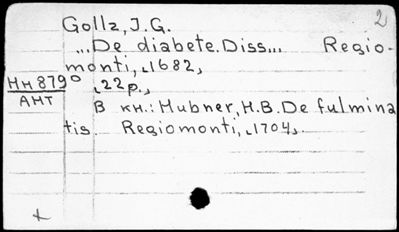 2
Gollz, J.G.
„De diabete. Diss„. Regio-
monti, 1682,
Нн 879° 22 p.,
АНТ
В кн.: Hubner, H.B. De fulmina
tis. Regiomonti, 1704.